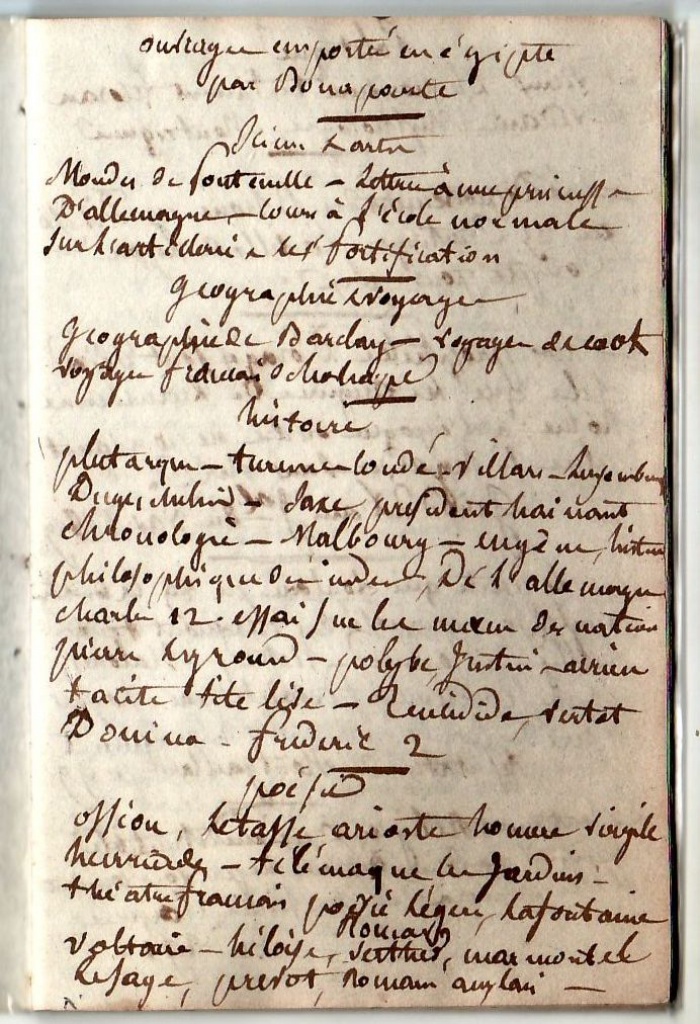 ouvrages emporté en égipte
par Bonaparte
Sciens & arts
Mondes de fontenelle – Lettre à une princesse
D'allemagne – cours à l'école normale
sur l'artillerie & les fortification
geographie & voyages
geographie de Barclay – voyages de cook
voyages français
histoire
plutarque – turenne Condé – villars – Luxembourg
Duguesclin – Saxe, president hainaut
chronologie – Malbourg – eugène, histoire
philosophique des indes, De l'allemagne
charle 12. essai sur les mœurs des nation
pierre le grand – polybe Justin – arrien
tacite tite live – vertot
Donina – frideric 2
poésie
ossion, le tasse arioste homere virgile
henriade – télémaque les jardins –
théatre francais poésie légere, Lafontaine
Romans
voltaire – héloïse, Verther, marmontel
Lesage, prevot, Romans anglais –